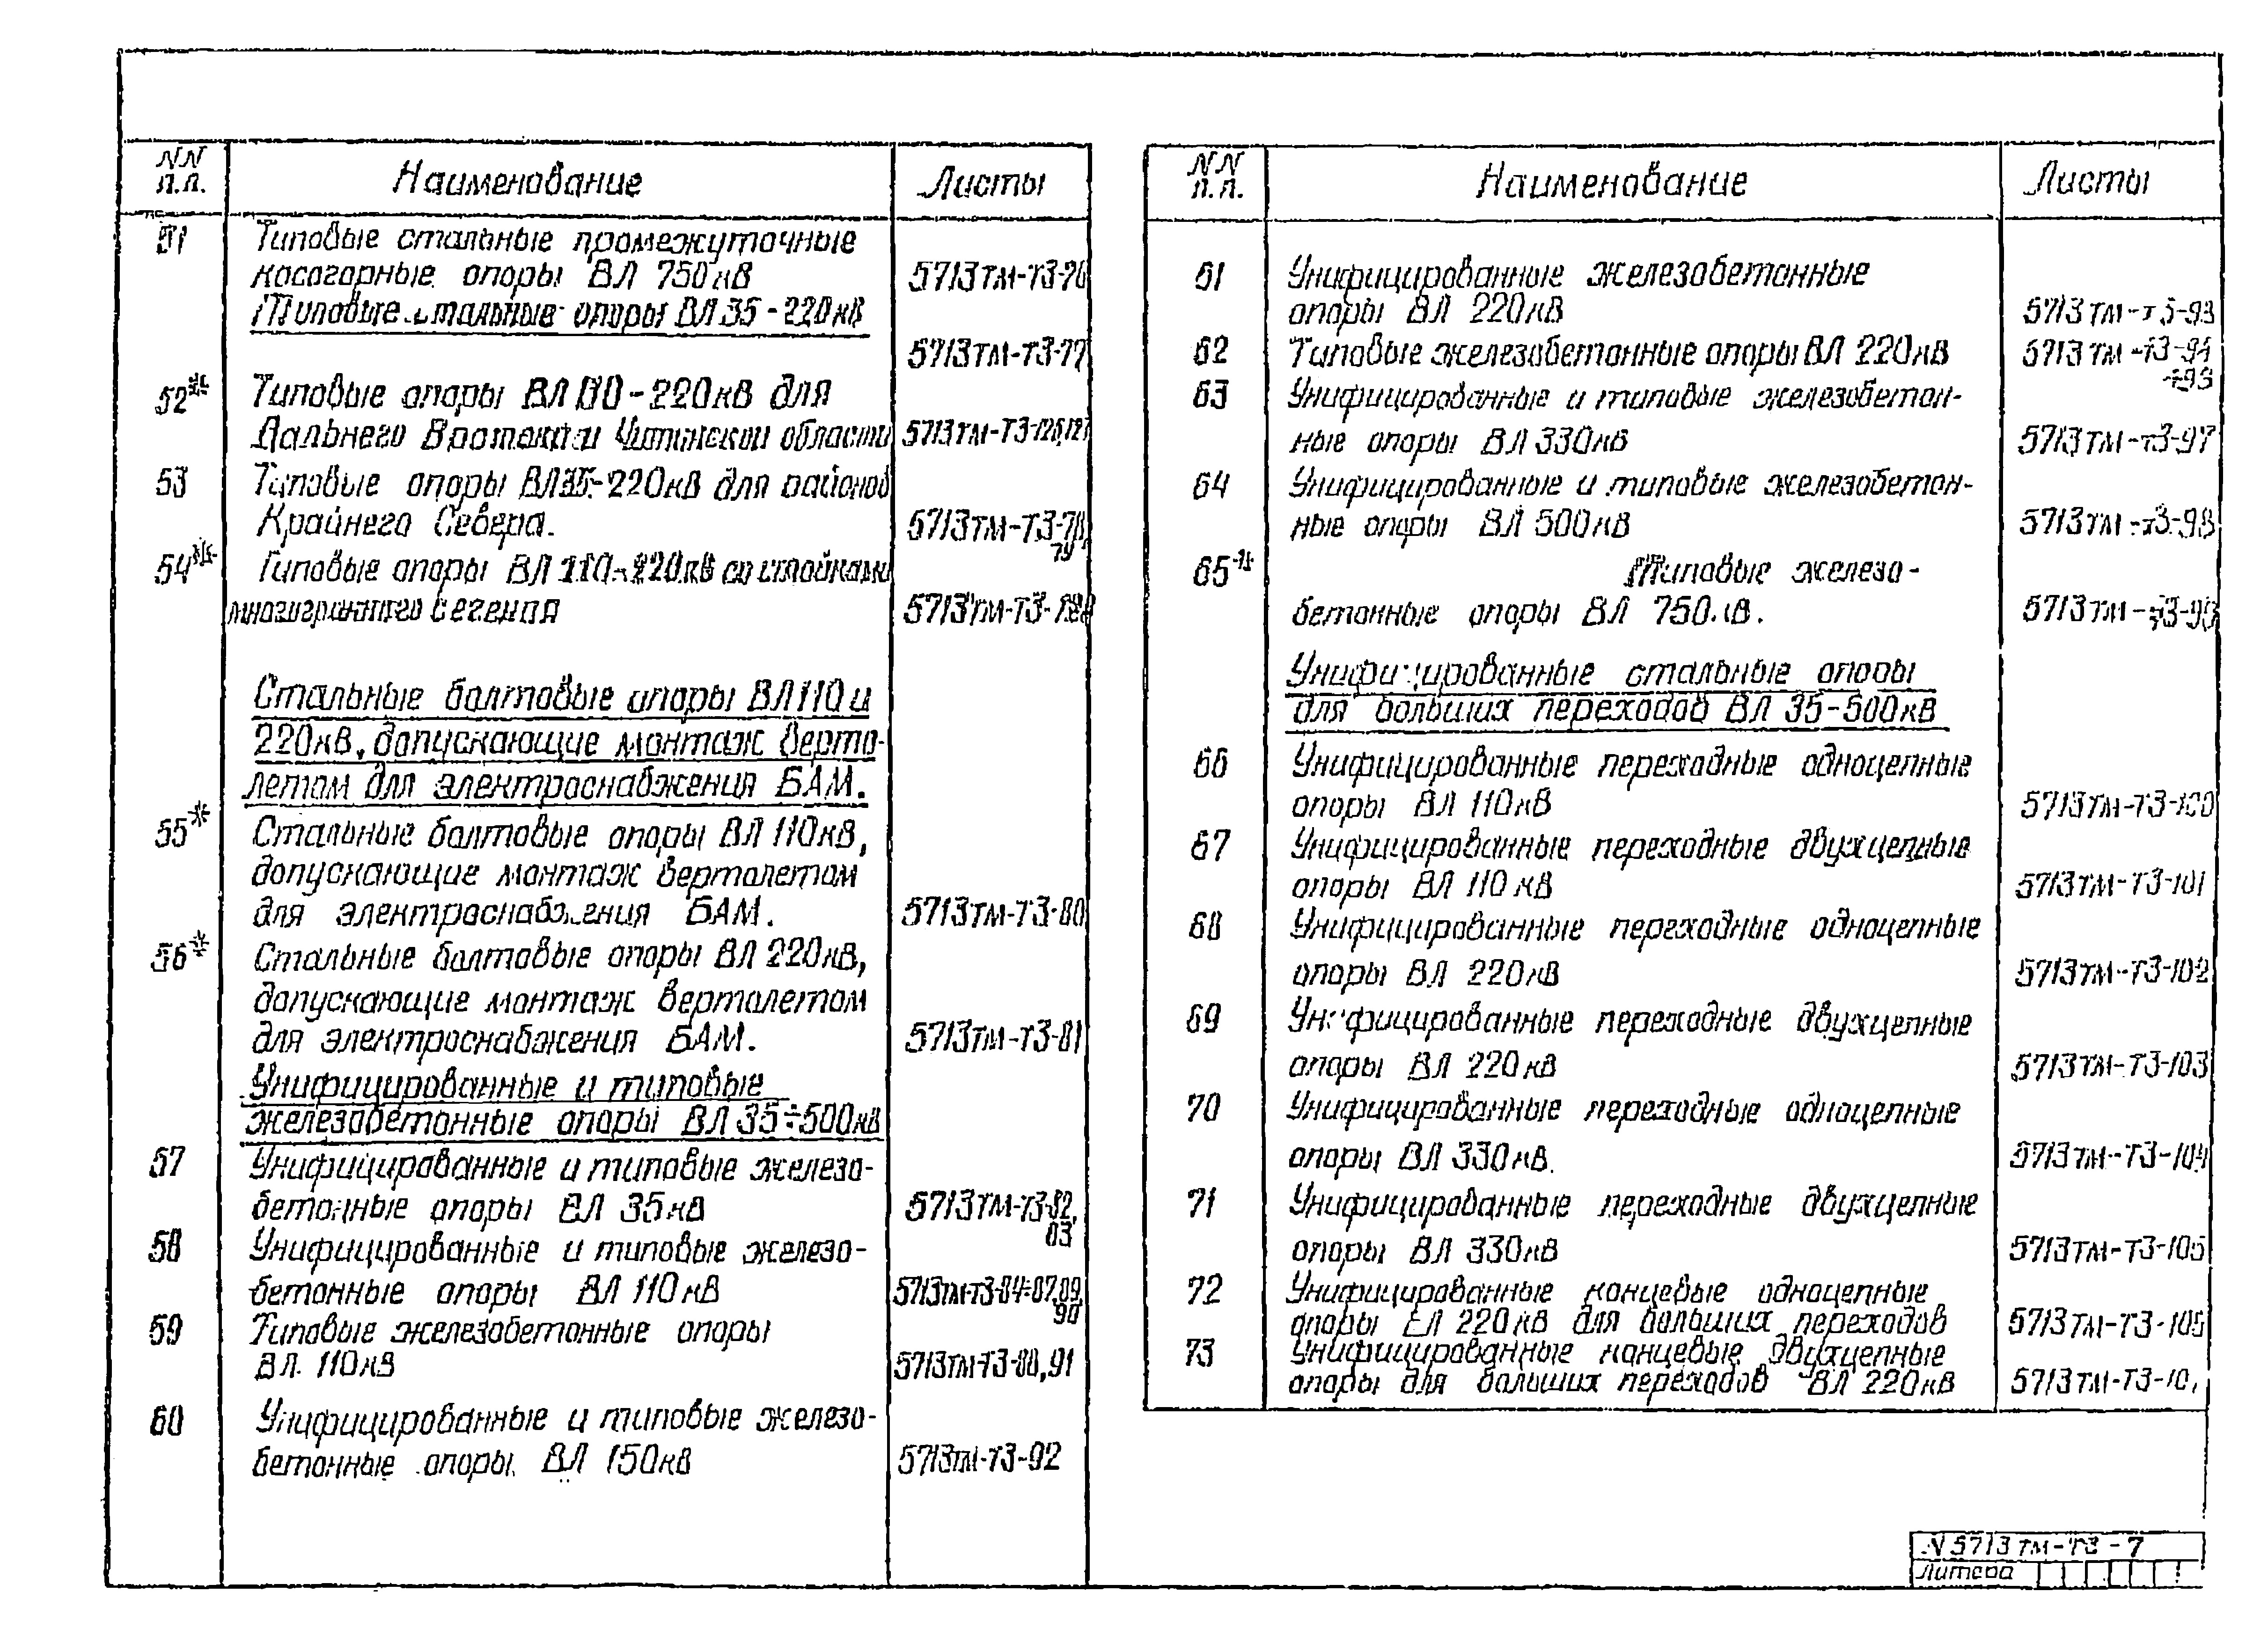 NN п.п. Наименование Листы
51 Типовые стальные промежуточные
косогорные опоры ВЛ 750кВ 5713тм-т3-76
Типовые стальные опоры ВЛ 35-220кВ
5713тм-т3-77
52* Типовые опоры ВЛ 110-220кВ для
Дальнего Востока и Читинской области 5713тм-т3-126,127
53 Типовые опоры ВЛ35-220кВ для районов
Крайнего Севера. 5713тм-т3-78,
79
54* Типовые опоры ВЛ 110-220кВ со стойками
многогранного сечения 5713тм-т3-128
Стальные болтовые опоры ВЛ 110 и
220кВ, допускающие монтаж верто-
летом для электроснабжения БАМ.
55* Стальные болтовые опоры ВЛ 110кВ,
допускающие монтаж вертолетом
для электроснабжения БАМ. 5713тм-т3-80
56* Стальные болтовые опоры ВЛ 220кВ,
допускающие монтаж вертолетом
для электроснабжения БАМ. 5713тм-т3-81
Унифицированные и типовые
железобетонные опоры ВЛ 35÷500кВ
57 Унифицированные и типовые железо-
бетонные опоры ВЛ 35кВ 5713тм-т3-82,
83
58 Унифицированные и типовые железо-
бетонные опоры ВЛ 110кВ 5713тм-т3-84÷87,89,
90
59 Типовые железобетонные опоры
ВЛ 110кВ 5713тм-т3-88,91
60 Унифицированные и типовые железо-
бетонные опоры ВЛ 150кВ 5713тм-т3-92
NN п.п. Наименование Листы
61 Унифицированные железобетонные
опоры ВЛ 220кВ 5713тм-т3-93
62 Типовые железобетонные опоры ВЛ 220кВ 5713тм-т3-94
63 Унифицированные и типовые железобетон-
ные опоры ВЛ 330кВ 5713тм-т3-97
64 Унифицированные и типовые железобетон-
ные опоры ВЛ 500кВ 5713тм-т3-98
65* Типовые железо-
бетонные опоры ВЛ 750кВ. 5713тм-т3-99
Унифицированные стальные опоры
для больших переходов ВЛ 35-500кВ
66 Унифицированные переходные одноцепные
опоры ВЛ 110кВ 5713тм-т3-100
67 Унифицированные переходные двухцепные
опоры ВЛ 110кВ 5713тм-т3-101
68 Унифицированные переходные одноцепные
опоры ВЛ 220кВ 5713тм-т3-102
69 Унифицированные переходные двухцепные
опоры ВЛ 220кВ 5713тм-т3-103
70 Унифицированные переходные одноцепные
опоры ВЛ 330кВ. 5713тм-т3-104
71 Унифицированные переходные двухцепные
опоры ВЛ 330кВ 5713тм-т3-105
72 Унифицированные концевые одноцепные
опоры ВЛ 220кВ для больших переходов 5713тм-т3-106
73 Унифицированные концевые двухцепные
опоры для больших переходов ВЛ 220кВ
N 5713тм-т3-7
Литера